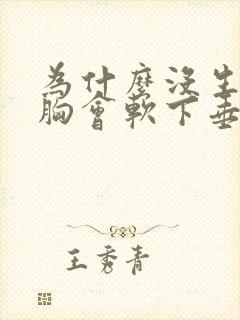 為什麼沒生
胸會軟下垂
王秀青